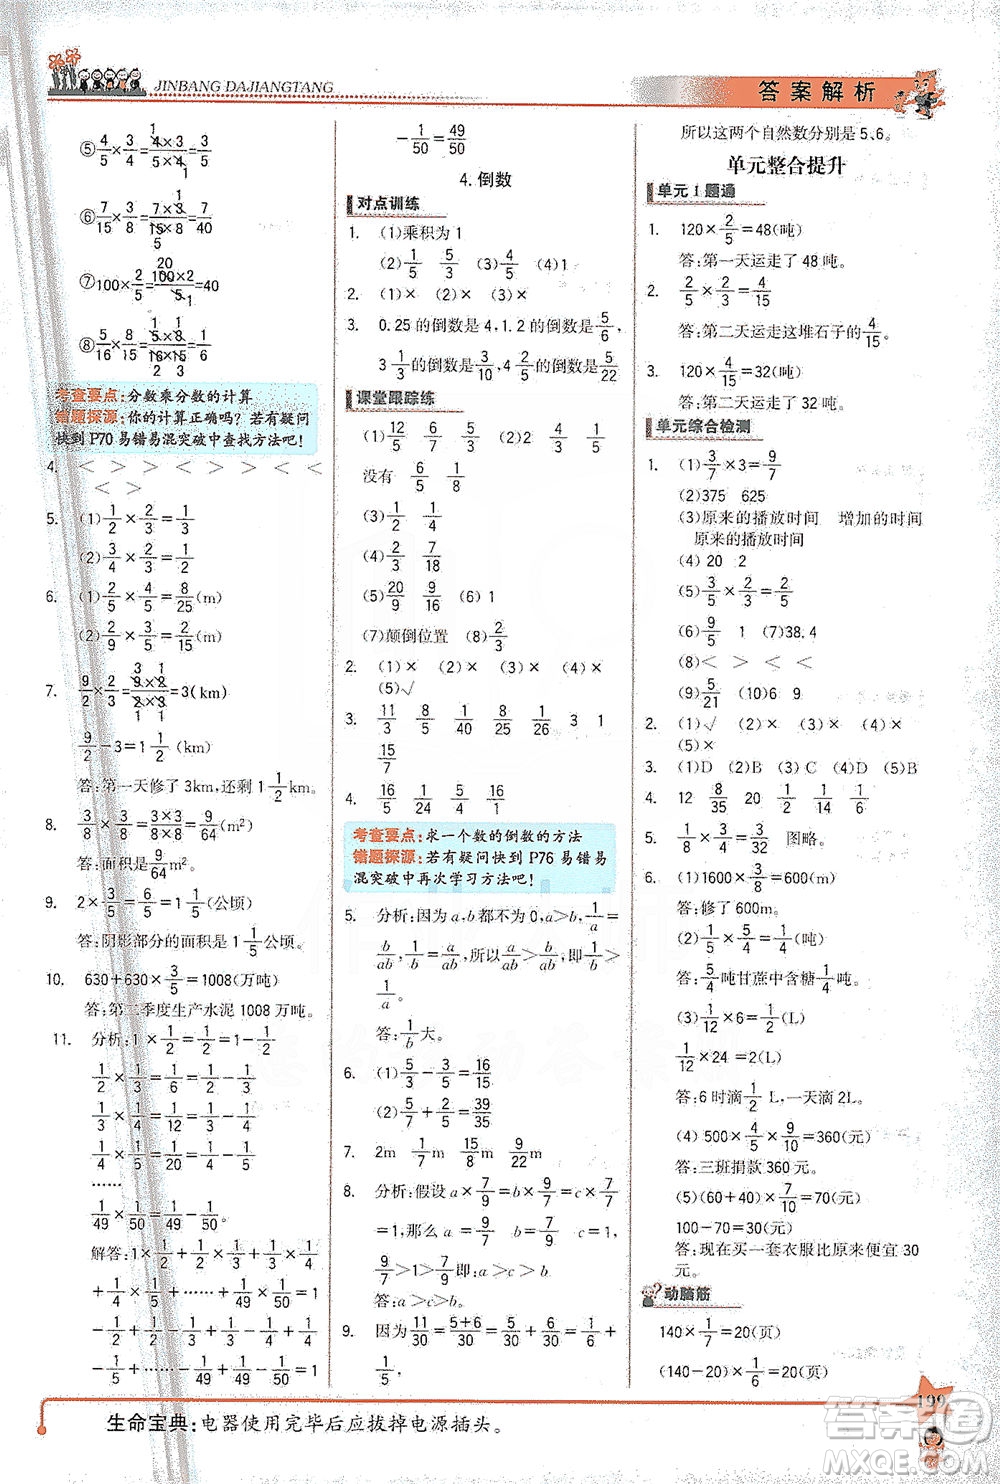 JINBANG DAJIANGTANG
答案解析
⑤4/5×3/4=4×3/5×4=3/5
⑥7/15×3/8=7×3/15×8=7/40
⑦100×2/5=100×2/5=40
⑧5/16×3/15=5×3/16×15=1/16
考查要点:分数乘分数的计算
错题探源:你的计算正确吗?若有疑问
快到 P70 易错易混突破中查找方法吧!
4. < > < > > < <
< >
5. (1)1/2×2/3=1/3
(2)3/4×2/3=1/2
6. (1)2/5×4/5=8/25(m)
(2)2/9×3/5=2/15(m)
7. 9/2×2/3=9×2/2×3=3(km)
9/2-3=1 1/2(km)
答:第一天修了 3km,还剩 1 1/2 km。
8. 3/8×3/8=3×3/8×8=9/64(m²)
答:面积是9/64 m²。
9. 2×3/5=6/5=1 1/5(公顷)
答:阴影部分的面积是 1 1/5公顷。
10. 630+630×3/5=1008(万吨)
答:第二季度生产水泥 1008 万吨。
11. 分析:1×1/2=1/2=1-1/2
1/2×1/3=1/6=1/2-1/3
1/3×1/4=1/12=1/3-1/4
1/4×1/5=1/20=1/4-1/5
……
1/49×1/50=1/49-1/50。
解答:1×1/2+1/2×1/3+1/3×
1/4+1/4×1/5+……+1/49×1/50
=1-1/2+1/2-1/3+1/3-1/4+
1/4-1/5+……+1/49-1/50=1
-1/50=49/50
4.倒数
对点训练
1. (1)乘积为 1
(2)1/5 5/4 (3)6/5 (4)1
2. (1)× (2)× (3)×
3. 0.25 的倒数是 4,1.2 的倒数是5/6,
3 1/3的倒数是3/10,4 2/5的倒数是5/22
课堂跟踪练
1. (1)12/5 6/5 (2)2 5/4 1
没有 6/5 1/8
(3)1/2 1/9
(4)2/3 7/18
(5)20/9 9/16 (6)1
(7)颠倒位置 (8)2/3
2. (1)× (2)× (3)× (4)×
(5)√
3. 11/3 5/8 1/40 4/25 1/26 3 1
15/7
4. 16/5 1/24 5/4 16/1
考查要点:求一个数的倒数的方法
错题探源:若有疑问快到 P76 易错易
混突破中再次学习方法吧!
5. 分析:因为 a,b都不为 0,a>b,1/a=
b/ab,1/b=a/ab,所以a/ab>b/ab,即1/b>
1/a。
答:1/b大。
6. (1)5/3-3/5=16/15
(2)5/7+2/5=39/35
7. 2m 1/7m 15/8m 9/22m
8. 分析:假设 a×7/9=b×9/7=c×7/7
=1,那么 a=9/7 b=7/9 c=1,
9/7>1>7/9即:a>c>b
答:a>c>b
9. 因为11/30=5+6/30=5/30+6/30=1/6+1/5
所以这两个自然数分别是 5、6。
单元整合提升
单元 1 题通
1. 120×2/5=48(吨)
答:第一天运走了 48 吨。
2. 2/5×2/3=4/15
答:第二天运走这堆石子的4/15。
3. 120×4/15=32(吨)
答:第二天运走了 32 吨。
单元综合检测
1. (1)3/7×3=9/7
(2)375 625
(3)原来的播放时间 增加的时间
原来的播放时间
(4)20 2
(5)3/5×3/4=9/20
(6)9/5 1 (7)38.4
(8)< > < >
(9)5/21 (10)6 9
2. (1)√ (2)× (3)× (4)×
(5)×
3. (1)D (2)B (3)D (4)B (5)C
4. 12 8/35 20 2/3
5. 1/8×1/2=1/16 图略。
6. (1)1600×3/8=600(m)
答:修了 600m。
(2)1/5×5/4=1/4(吨)
答:5/4吨甘蔗中含糖1/4吨。
(3)1/12×6=1/2(L)
1/12×24=2(L)
答:6 时滴1/2 L,一天滴 2L。
(4)500×4/5×9/10=360(元)
答:三班捐款 360 元。
(5)(60+40)×7/10=70(元)
100-70=30(元)
答:现在买一套衣服比原来便宜 30
元。
动脑筋
140×1/7=20(页)
(140-20)×1/6=20(页)
199
生命宝典:电器使用完毕后应拔掉电源插头。
答案圈
MXQE.COM